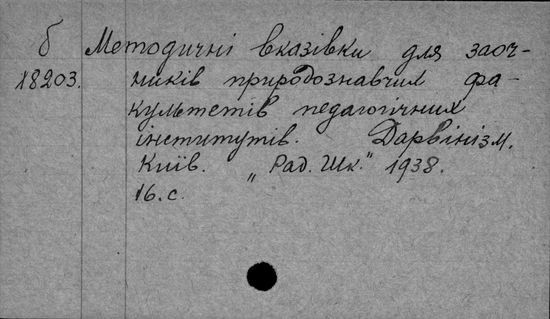 б Методичні вказівки для заоч-
18203. ників природознавчих фа-
культетів педагогічних
інститутів. Дарвінізм.
Київ. „Рад. Шк.“ 1938.
16. с.